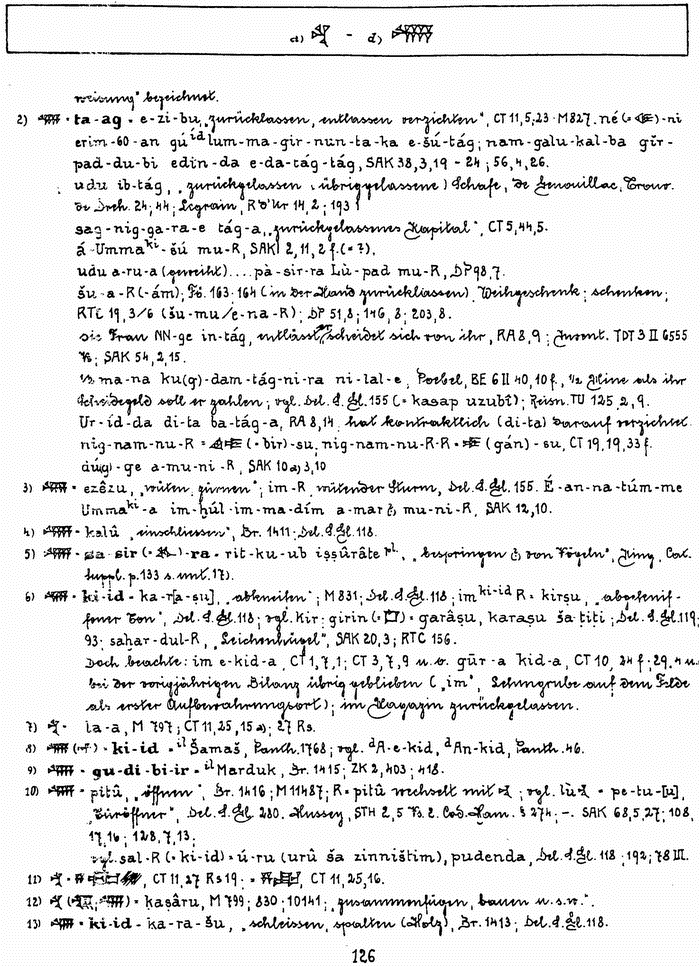 a) - d)
weisung" bezeichnet.
2) = ta-ag = e-zi-bu, „zurücklassen, entlassen verzichten", CT 11,5,23 · M 827. né (= )-ni
erim-60-an gú íd lum-ma-gir-nun-ta-ka e-šú-tág; nam-galu-kal-ba gīr-
pad-du-bi edin-da e-da-tág-tág, SAK 38,3,19 - 24; 56,4,26.
udu ib-tág, „zurückgelassene (übriggelassene) Schafe, de Genouillac, Trouv.
de Dreh. 24; 44; Legrain, R d'Ur 14,2; 193
sag-nig-ga-ra-e tág-a, „zurückgelassenes Kapital", CT 5,44,5.
á-Umma ki-šú mu-R, SAK 2,11,2 f. (= ?).
udu a-ru-a (geweiht) .... pà-sir-ra Lù-pad mu-R, DP 98,7.
šu-a-R (-ám); Fö. 163·164 (in der Hand zurücklassen) Weihgeschenk; schenken;
RTC 19,3/6 (šu-mu/e-na-R); DP 51,8; 146,8; 203,8.
die Frau NN-ge in-tág, entlässt scheidet sich von ihr, RA 8,9; Invent. TDT 3 II 6555
Vs; SAK 54,2,15.
½ ma-na ku(g)-dam-tág-ni-ra ni-lal-e, Poebel, BE 6 II 40,10 f., ½ Mine als ihr
Scheidegeld soll er zahlen; vgl. Del. S. Gl. 155 (= kasap uzubî); Reisn. TU 125,2,9.
Ur-íd-da di-ta ba-tág-a, RA 8,14 hat kontraktlich (di-ta) darauf verzichtet.
nig-nam-nu-R = (= bir)-su, nig-nam-nu-R-R = (gán)-su, CT 19,19,33 f.
dú(g)-ge a-mu-ni-R, SAK 10 a) 3,10
3) = ezêzu, „wüten, zürnen"; im-R wütender Sturm, Del. S. Gl. 155. É-an-na-túm-me
Umma ki-a im-ḫúl-im-ma-dím a-mar mu-ni-R, SAK 12,10.
4) = kalû „einschliessen", Br. 1411; Del. S. Gl. 118.
5) = sa sir (= )-ra - rit-ku-ub iṣṣûrâte pl., „bespringen von Vögeln", King, Cat.
Suppl. p. 133 s. unt. 17).
6) = ki-id - ka-r[a-ṣu], „abkneifen"; M 831; Del. S. Gl. 118; im ki-id R = kirṣu, „abgeknif-
fener Ton", Del. S. Gl. 118; vgl. Kir; girin (= ) = garâṣu, karaṣu ša ṭiṭi; Del. S. Gl. 119;
93; saḫar-dul-R, „Leichenhügel", SAK 20,3; RTC 156.
Doch beachte: im e-kid-a, CT 1,7,1; CT 3,7,9 u. o. gūr-a kid-a, CT 10, 24 f.; 29.4 u.
bei der vorigjährigen Bilanz übrig geblieben („im", Lehmgrube auf dem Felde
als erster Aufbewahrungsort); im Magazin zurückgelassen.
7) = la-a, M 797; CT 11,25,15 a); 27 Rs.
8) = ki-id = il Šamaš, Panth. 1768; vgl. d A-e-kid, d An-kid, Panth. 46.
9) = gu-di-bi-ir = il Marduk, Br. 1415; ZK 2,403; 418.
10) = pitû, „öffnen", Br. 1416; M 11487; R = pitû wechselt mit ; vgl. lù = pe-tu-[u],
„Türöffner", Del. S. Gl. 280. Hussey, STH 2,5 Vs. 2. Cod. Ham. § 274; -. SAK 68,5,27; 108,
17,16; 128,7,13;
vgl. sal-R (= ki-id) = ú-ru (urû ša zinništim), pudenda, Del. S. Gl. 118; 192; 78 III.
11) = , CT 11,27 Rs 19; = , CT 11,25,16.
12) ( , ) = kaṣâru, M 799; 830; 10141; „zusammenfügen, bauen u. s. w.".
13) = ki-id - ka-ra-šu, „schleissen, spalten (Holz), Br. 1413; Del. S. Gl. 118.
126